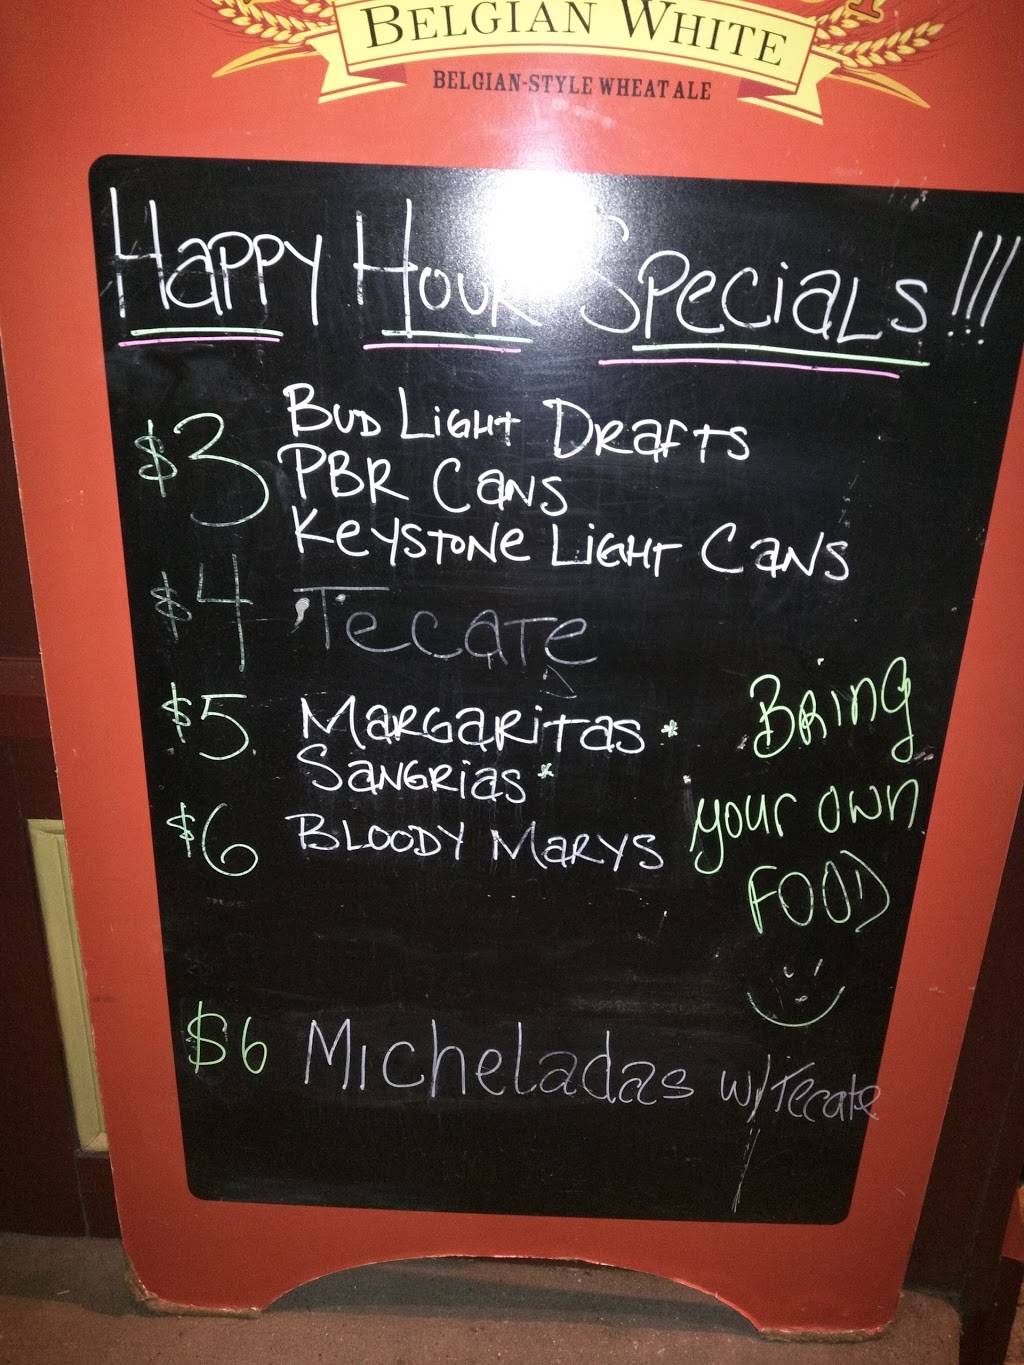 BELGIAN WHITE
BELGIAN-STYLE WHEAT ALE
Happy Hour Specials!!!
$3 Bud Light Drafts
PBR Cans
Keystone Light Cans
$4 Tecate
$5 Margaritas *
Sangrias *
$6 Bloody Marys
Bring
your own
FOOD
$6 Micheladas w/Tecate